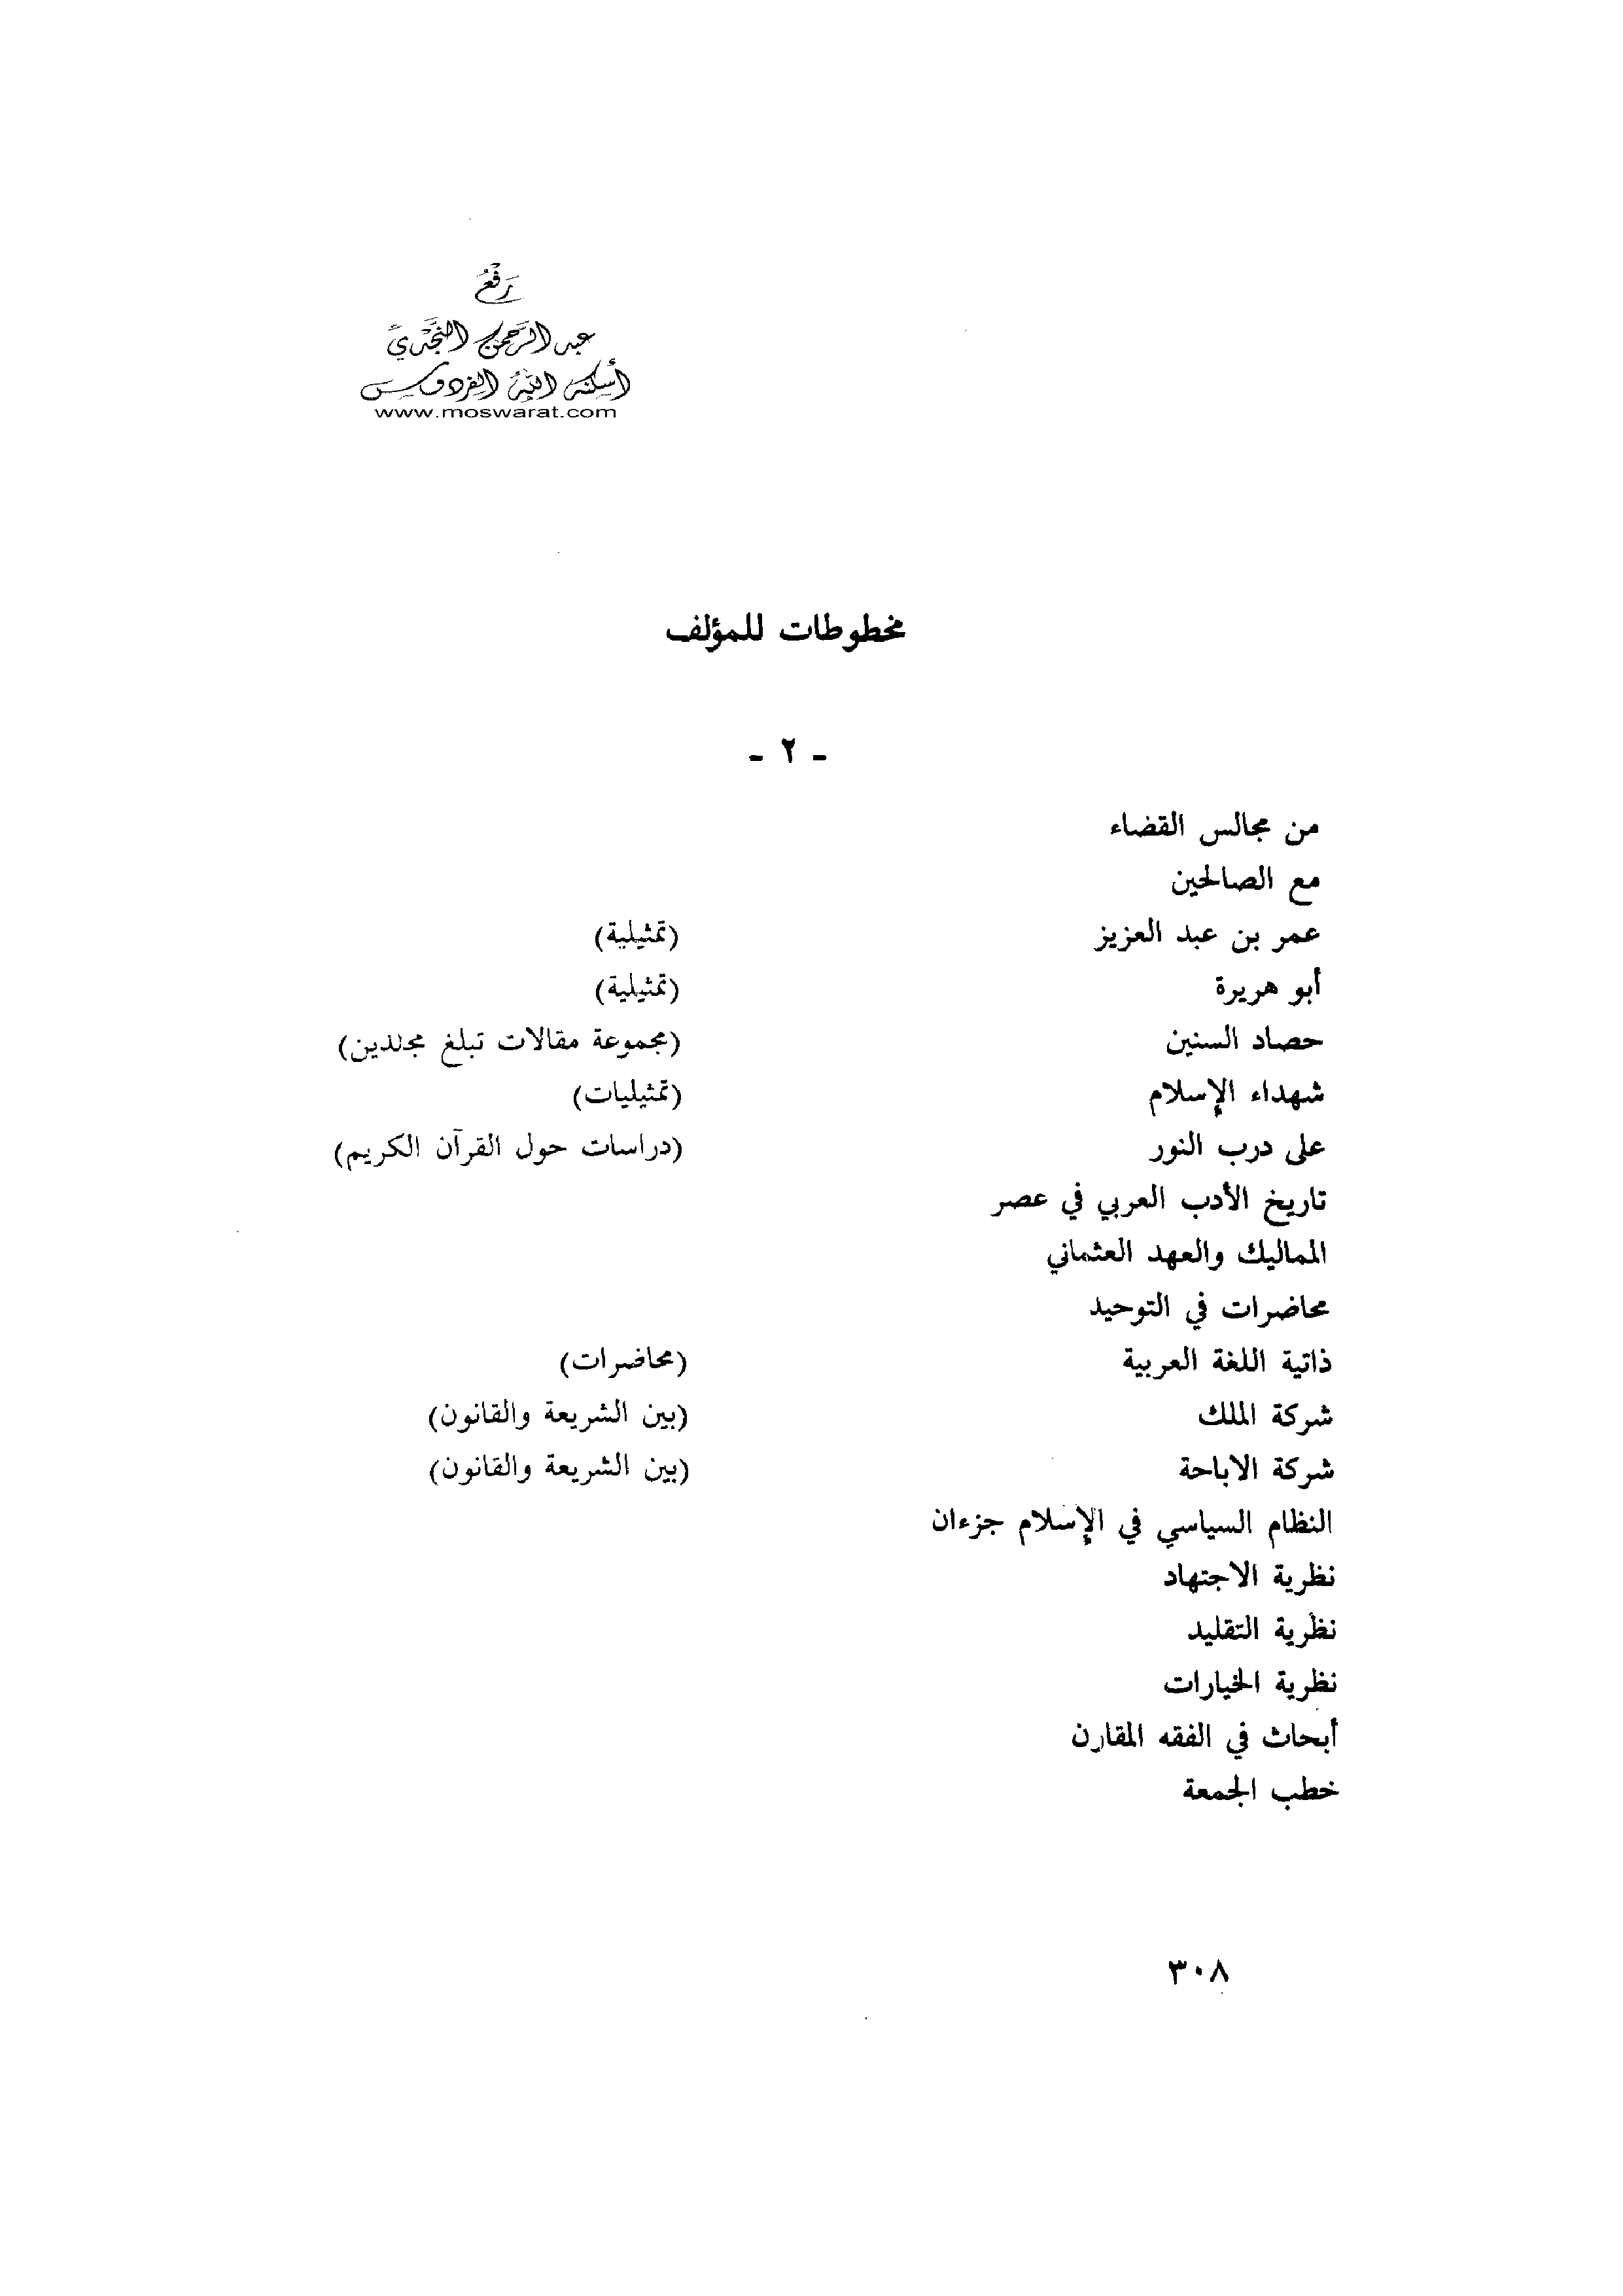 رَفْعُ
عبد الرحمن النجدي
أسكنه الله الفردوس
www.moswarat.com
مخطوطات للمؤلف
- ٢ -
من مجالس القضاء
مع الصالحين
عمر بن عبد العزيز (تمثيلية)
أبو هريرة (تمثيلية)
حصاد السنين (مجموعة مقالات تبلغ مجلدين)
شهداء الإسلام (تمثيليات)
على درب النور (دراسات حول القرآن الكريم)
تاريخ الأدب العربي في عصر
المماليك والعهد العثماني
محاضرات في التوحيد
ذاتية اللغة العربية (محاضرات)
شركة الملك (بين الشريعة والقانون)
شركة الاباحة (بين الشريعة والقانون)
النظام السياسي في الإسلام جزءان
نظرية الاجتهاد
نظرية التقليد
نظرية الخيارات
أبحاث في الفقه المقارن
خطب الجمعة
٣٠٨